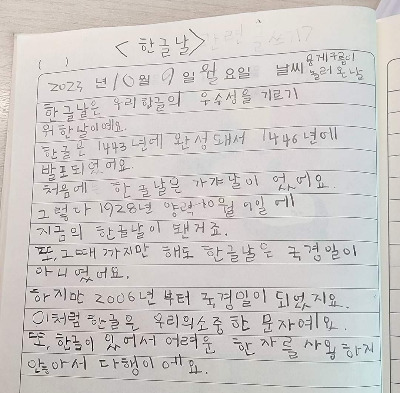 ( ) <한글날>
2023 년 10월 9일 월요일 날씨 뭉게구름이 놀러 온 날
한글날은 우리한글의 우수성을 기르기
위한날이예요.
한글은 1443년에 완성돼서 1446년에
발포되었어요.
처음에 한글날은 가갸날이 었어요.
그렇다 1928년 양력 10월 9일에
지금의 한글날이 됀거죠.
또, 그때까지만 해도 한글날은 국경일이
아니였어요.
하지만 2006년부터 국경일이 되었지요.
이처럼 한글은 우리의소중한 문자예요.
또, 한글이 있어서 어려운 한자를 사용하지
안아서 다행이에요.